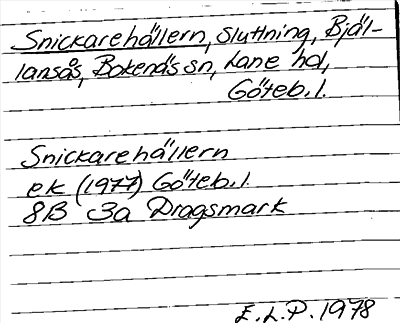 Snickarehällern, Sluttning, Bjäl-
lansås, Bokenäs sn, Lane hd,
Göteb. l.
Snickarehällern
ek (1977) Göteb. l.
8B 3a Dragsmark
E.L.P. 1978